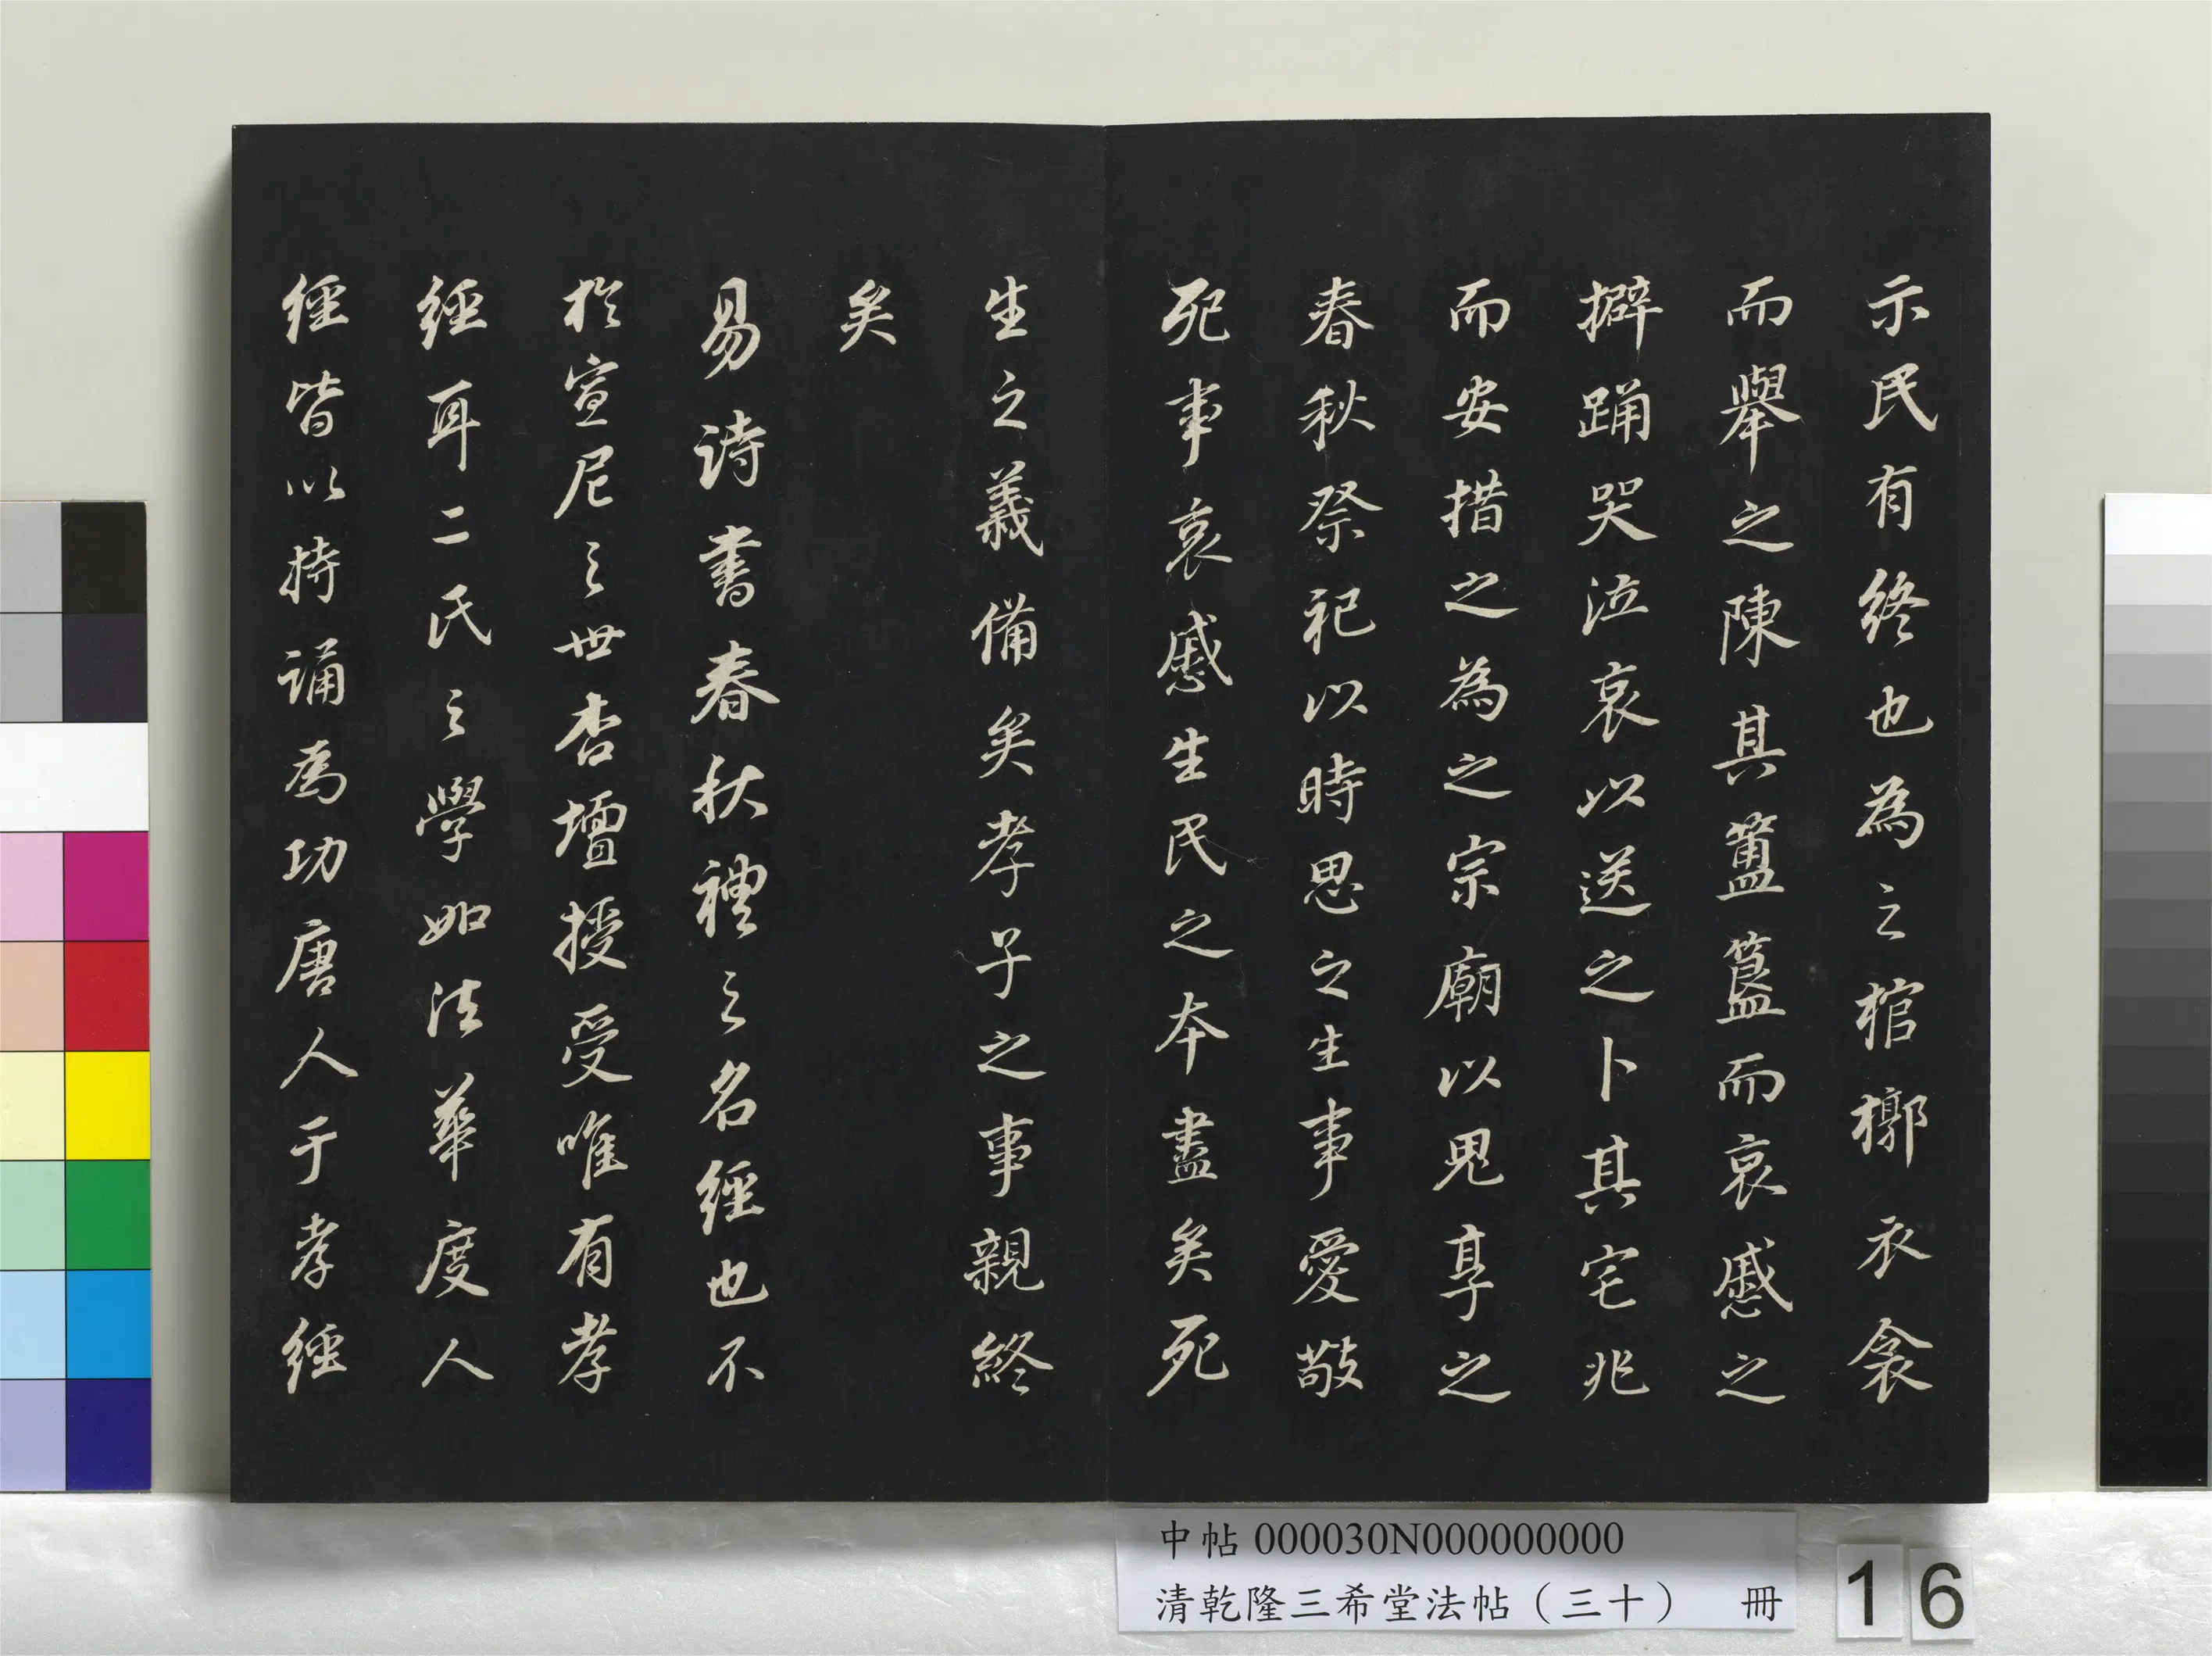 示民有終也為之棺槨衣衾
而舉之陳其簠簋而哀慼之
擗踊哭泣哀以送之卜其宅兆
而安措之為之宗廟以鬼享之
春秋祭祀以時思之生事愛敬
死事哀慼生民之本盡矣死
生之義備矣孝子之事親終
矣
易詩書春秋禮之名經也不
於宣尼之世杏壇授受唯有孝
經耳二氏之學如法華度人
經皆以持誦為功唐人于孝經
中帖 000030N000000000
清乾隆三希堂法帖（三十） 冊
16